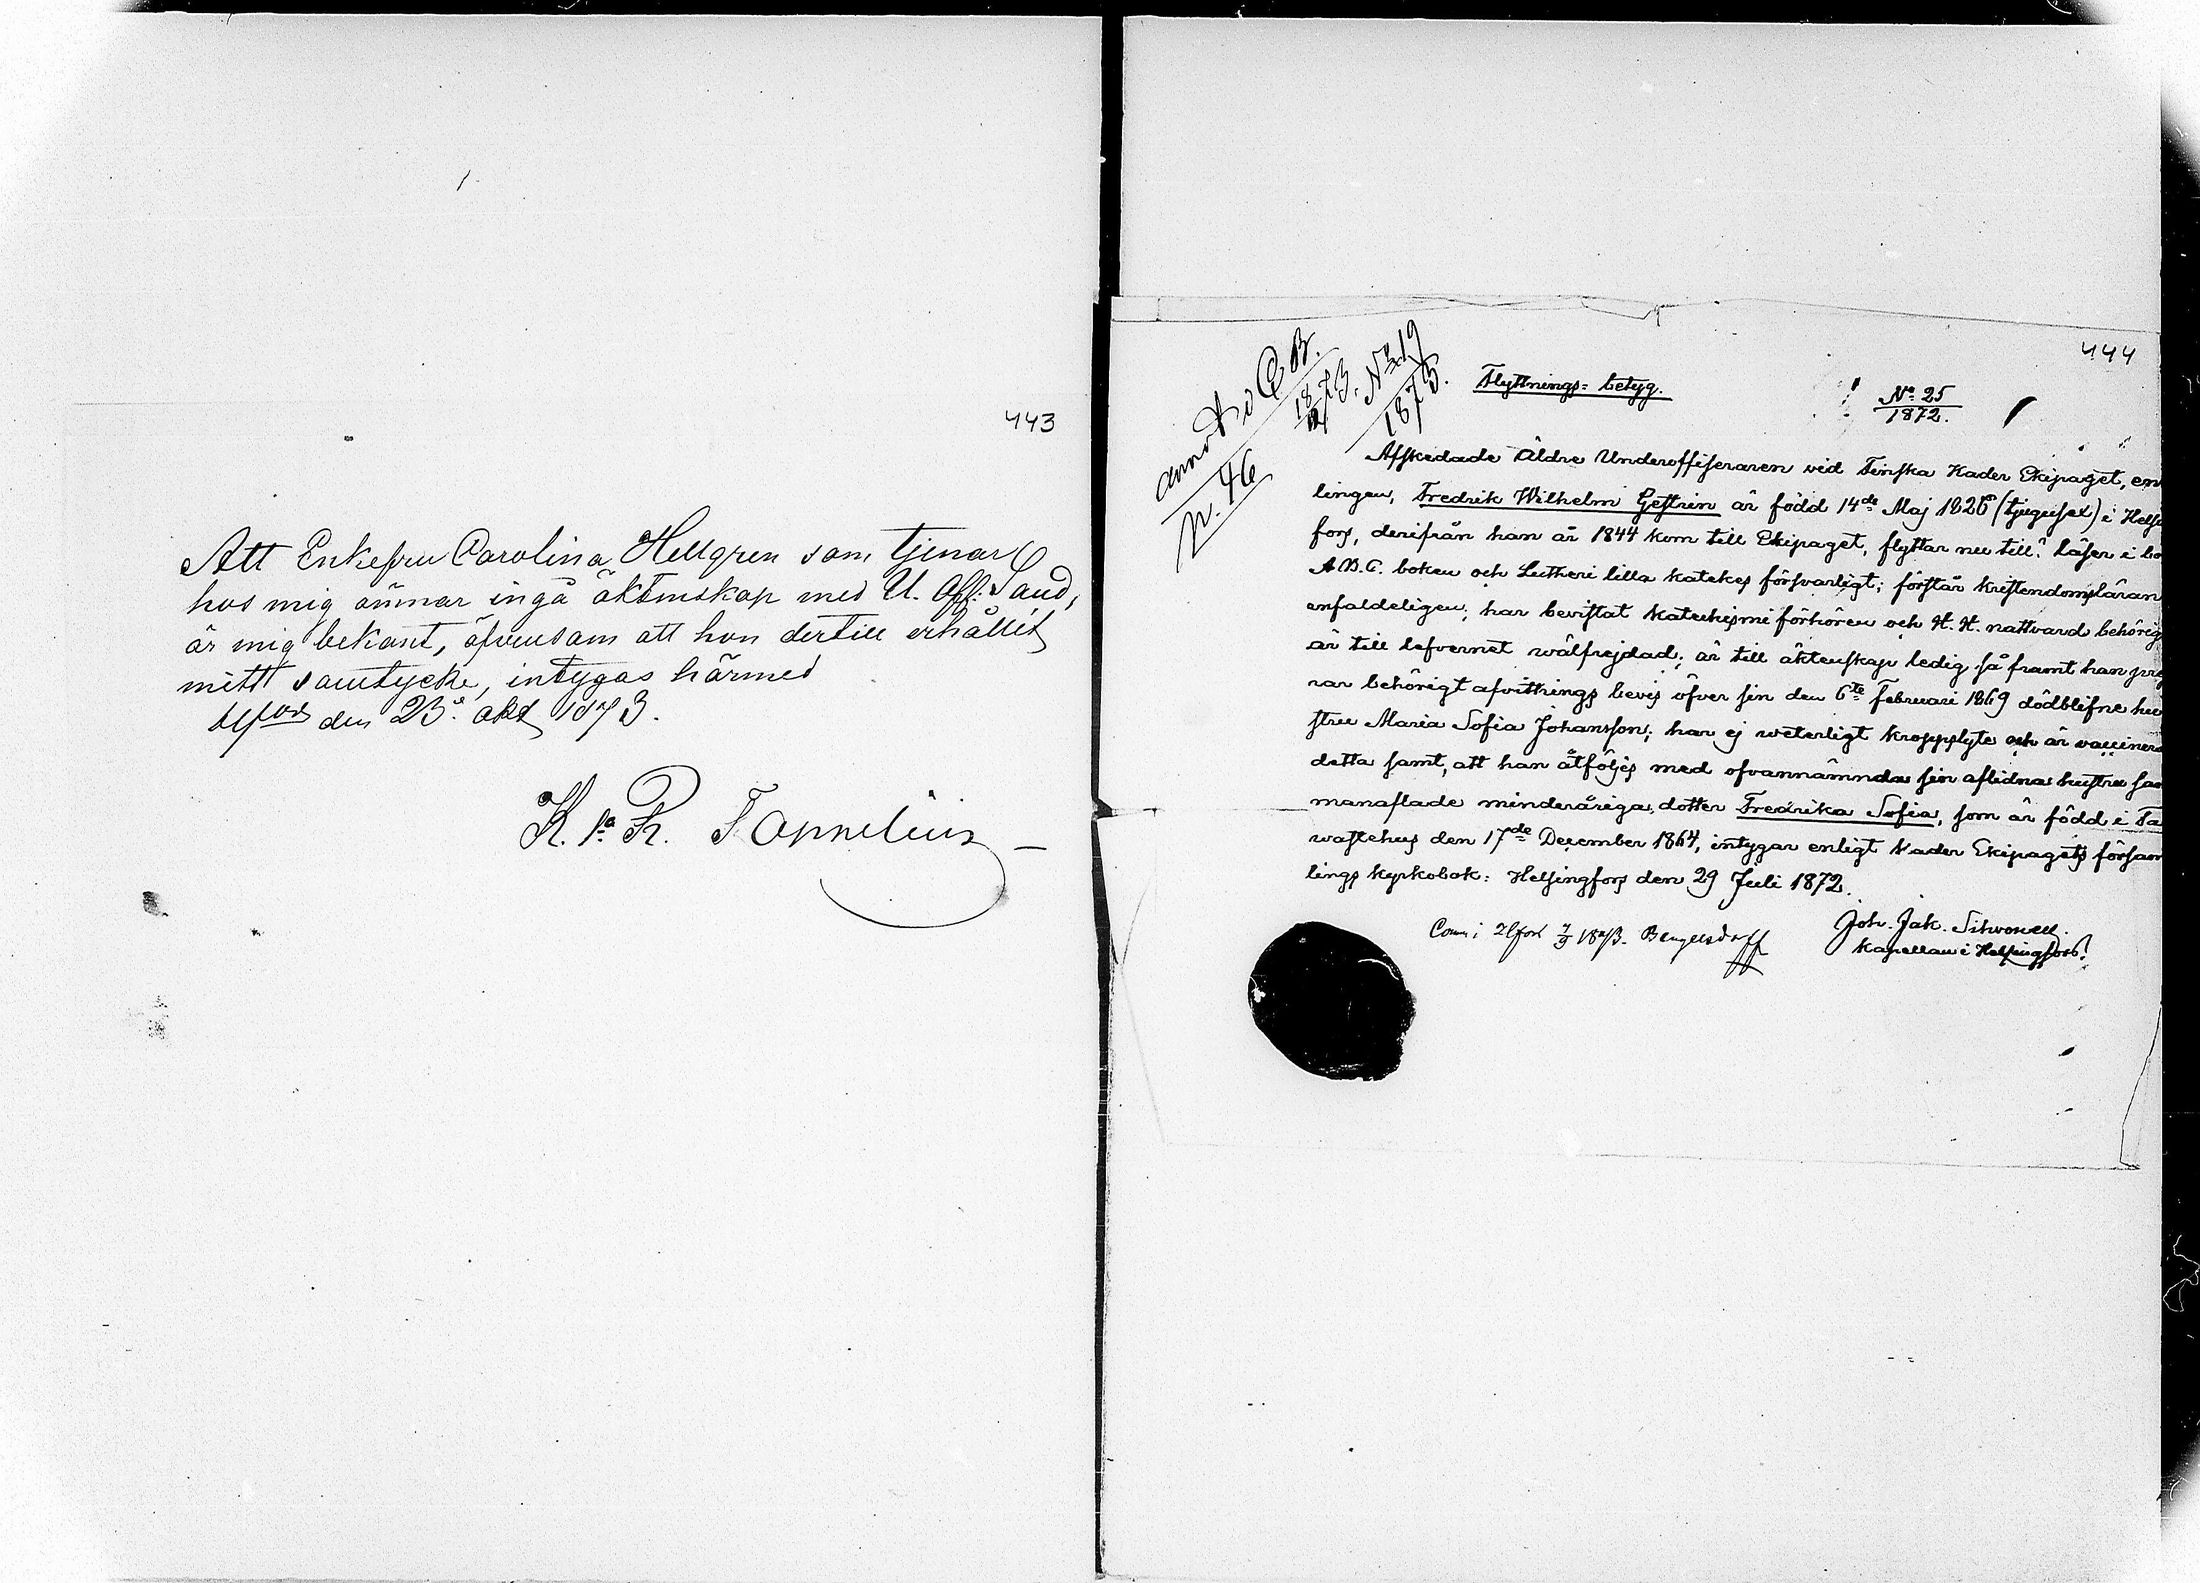 443
Att Enkefru Carolina Hellgren som tjenar
hos mig ämnar ingå äktenskap med U. Off. Sand,
är mig bekant, äfvensom att hon dertill erhållit
mitt samtycke, intygas härmed
Hfors den 23 okt 1873.
444
Flyttnings-betyg.
No. 25
1872.
No 19
1873.
N. 46
Afskedade Äldre Underofficeraren vid Finska Kader Ekipaget, en
lingen, Fredrik Wilhelm Gestrin är född 14de Maj 1826 (tjugusex) i Helsi
fors, derifrån han år 1844 kom till Ekipaget, flyttar nu till? läser i bo
A.B.C. boken och Lutheri lilla katekes försvarligt; förstår kristendomsläran
enfaldeligen; har bevistat katechismi förhören och H. H. nattvard behörig
är till lefvernet wälfrejdad; är till äktenskap ledig så framt han pre
rar behörigt afvittrings bevis öfver sin den 6te Februari 1869 dödblifne hu
stru Maria Sofia Johansson; har ej weterligt kroppslyte och är vaccinera
detta samt, att han åtföljes med ofvannämnda sin aflidna hustru sa
manaflade minderåriga dotter Fredrika Sofia, som är född i Ta
wastehus den 17de December 1864, intygar enligt Kader Ekipagets försam
lings kyrkobok: Helsingfors den 29 Juli 1872.
Joh. Jak.
Kapellan i Helsingfors.